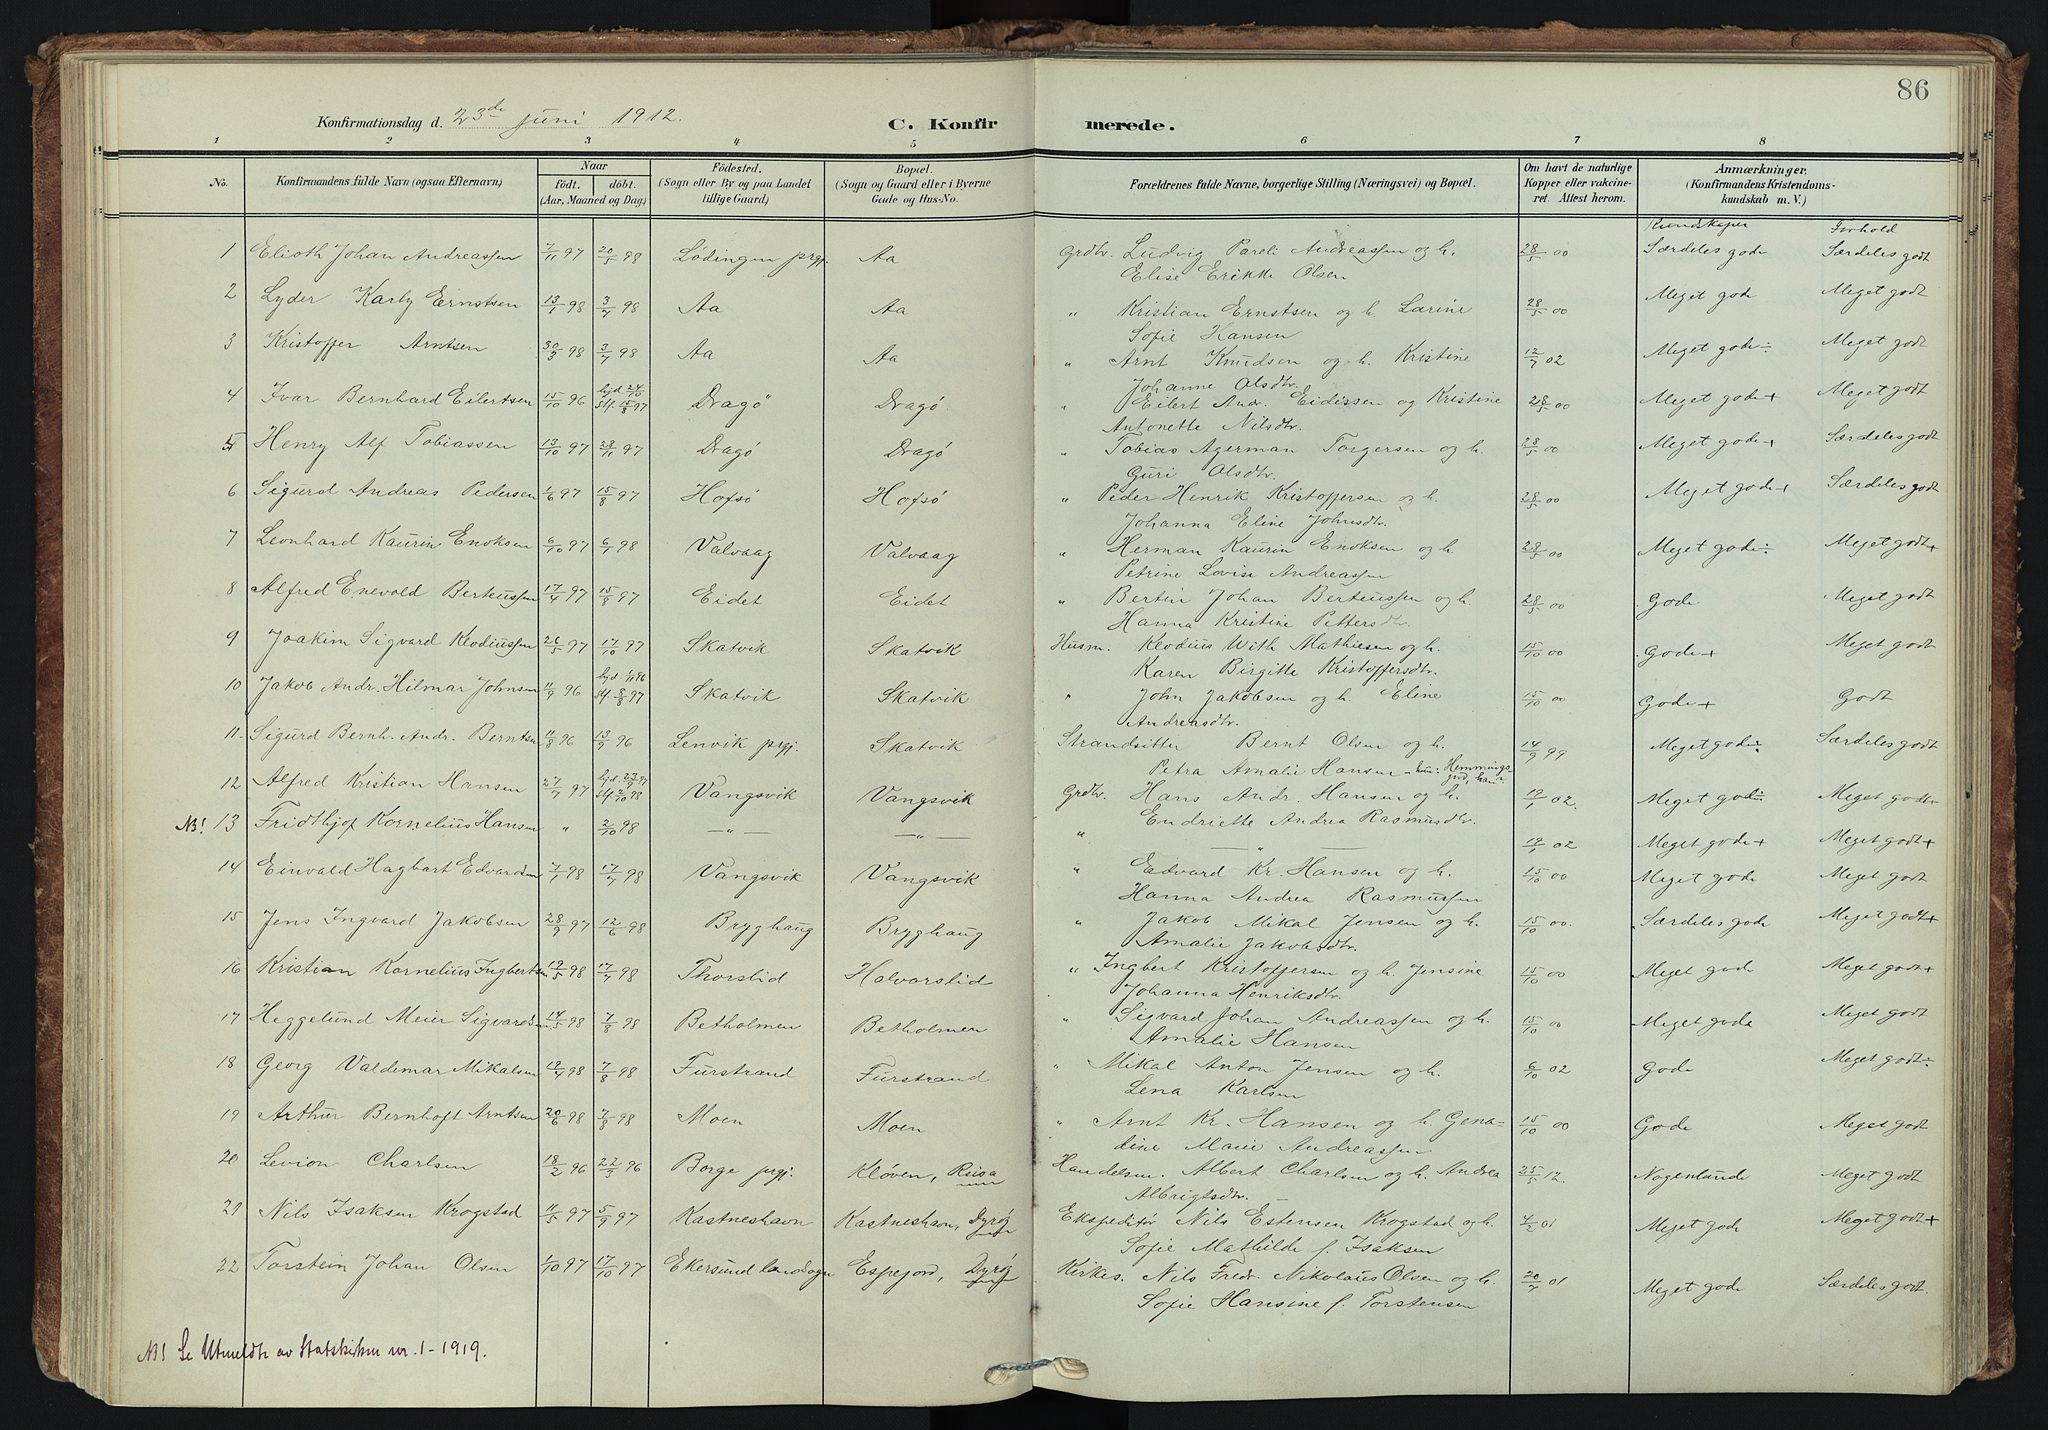 86
Konfirmationsdag d. 23de juni 1912.
C. Konfirmerede.
1 2 3 4 5 6 7 8
No. Konfirmandens fulde Navn (ogsaa Efternavn). Naar födt. döbt. (Aar, Maaned og Dag.) Födested. (Sogn eller By og paa Landet tillige Gaard.) Bopæl. (Sogn og Gaard eller i Byerne Gade og Hus-No. Forældrenes fulde Navne, borgerlige Stilling (Næringsvei) og Bopæl. Om havt de naturlige Kopper eller vakcineret. Attest herom. Anmærkninger. (Konfirmandens Kristendomskundskab m. V.)
Kundskaper Forhold
1 Elioth Johan Andreassen 7/11 97 20/5 98 Lødingen prgj. Aa Grdbr. Ludvig Pareli Andreassen og h. 28/5 00 Særdeles gode Særdeles godt
Elise Erikke Olsen
2 Lyder Karly Ernstsen 13/1 98 3/7 98 Aa Aa " Kristian Ernstsen og h. Larine 28/5 00 Meget gode Meget godt
Sofie Hansen
3 Kristoffer Arntsen 30/3 98 3/7 98 Aa Aa " Arnt Knudsen og h. Kristine 12/7 02 Meget gode÷ Meget godt
Johanne Olsdtr.
4 Ivar Bernhard Eilertsen 15/10 96 hjd. 24/10 stf. 15/8 97 Dragö Dragö " Eilert Andr. Eidissen og Kristine 28/5 00 Meget gode+ Meget godt
Antonette Nilsdtr.
5 Henry Alf Tobiassen 13/10 97 28/11 97 Dragø Dragø " Tobias Agerman Torgersen og h. 28/5 00 Meget gode+ Særdeles godt
Guri Olsdtr.
6 Sigurd Andreas Pedersen 1/6 97 15/8 97 Hofsø Hofsø " Peder Henrik Kristoffersen og h. 28/5 00 Meget gode+ Særdeles godt
Johanna Eline Johnsdtr.
7 Leonhard Kaurin Enoksen 6/10 97 6/1 98 Valvaag Valvaag " Herman Kaurin Enoksen og h. 28/5 00 Meget gode÷ Meget godt+
Petrine Lovise Andreassen
8 Alfred Enevold Berteussen 17/4 97 15/8 97 Eidet Eidet " Bertin Johan Berteussen og h. 28/5 00 Gode Meget godt
Hanna Kristine Pettersdtr.
9 Joakim Sigvard Klodiussen 26/5 97 17/10 97 Skatvik Skatvik Husm. Klodius With Mathiesen og h. 15/10 00 Gode+ Meget godt
Karen Birgitte Kristoffersdtr.
10 Jakob Andr. Hilmar Johnsen 11/9 96 hjd. 1/11 96 stf. 8/8 97 Skatvik Skatvik " John Jakobsen og h. Eline 15/10 00 Gode+ Godt
Andreasdtr.
11. Sigurd Bernh. Andr. Berntsen 11/8 96 13/9 96 Lenvik prgj. Skatvik Strandsitter Bernt Olsen og h. 14/9 99 Meget gode÷ Særdeles godt
Petra Amalie Hansen
12 Alfred Kristian Hansen 27/7 97 stf. 2/10 98 Vangsvik Vangsvik Grdbr. Hans Andr. Hansen og h. 19/1 02. Meget gode÷ Meget godt+
Endriette Andrea Rasmusdtr.
NB! 13 Fridthjof Kornelius Hansen " 2/10 98 —"— —"— " —"— 19/1 02 Meget gode+ Meget godt+
14 Einvald Hagbart Edvardsen 7/1 98 17/7 98 Vangsvik Vangsvik " Edvard Kr. Hansen og h. 15/10 00 Meget gode Meget godt
Hanna Andrea Rasmussen
15 Jens Ingvard Jakobsen 28/9 97 12/6 98 Bryghaug Bryghaug " Jakob Mikal Jensen og h. 15/10 00. Særdeles gode Meget godt+
Amalie Jakobsdtr.
16 Kristian Kornelius Ingbertsen 19/5 98 17/7 98 Thorslid Halvorslid " Ingbert Kristoffersen og h. Jensine 15/10 00 Meget gode Meget godt+
Johanna Henriksdtr.
17 Heggelund Meier Sigvardsen 14/5 98 7/8 98 Betholmen Betholmen " Sigvard Johan Andreassen og h. 15/10 00 Meget gode Meget godt
Amalie Hansen
18 Georg Valdemar Mikalsen 19/4 98 7/8 98 Furstrand Furstrand " Mikal Anton Jensen og h. 6/10 02 Gode Meget godt÷
Lena Karlsen
19 Arthur Bernhoft Arntsen 20/6 98 7/8 98 Moen Moen " Arnt Kr. Hansen og h. Gena- 15/10 00 Gode Meget godt
dine Marie Andreassen
20 Levion Charlsen 18/2 96 22/3 96 Borge prgj. Kløven, Reisa Handelsm. Albert Charlsen og h. Andrea 25/5 12. Nogenlunde Meget godt
Albrigtsdtr. —
21 Nils Isaksen Krogstad 11/5 97 5/9 97 Kastneshavn Kastneshavn, Dyrø Ekspeditør Nils Estensen Krogstad og h. 7/2 01 Meget gode Meget godt+
Sofie Mathilde f. Isaksen
22 Torstein Johan Olsen 1/10 97 17/10 97 Ekersund landsogn Espejord, Dyrø Kirkes. Nils Fredr. Nikolaus Olsen og h. 20/7 01 Meget gode Særdeles godt.
Sofie Hansine f. Torstensen
NB! Se Utmeldte av Statskirken nr. 1 - 1919.